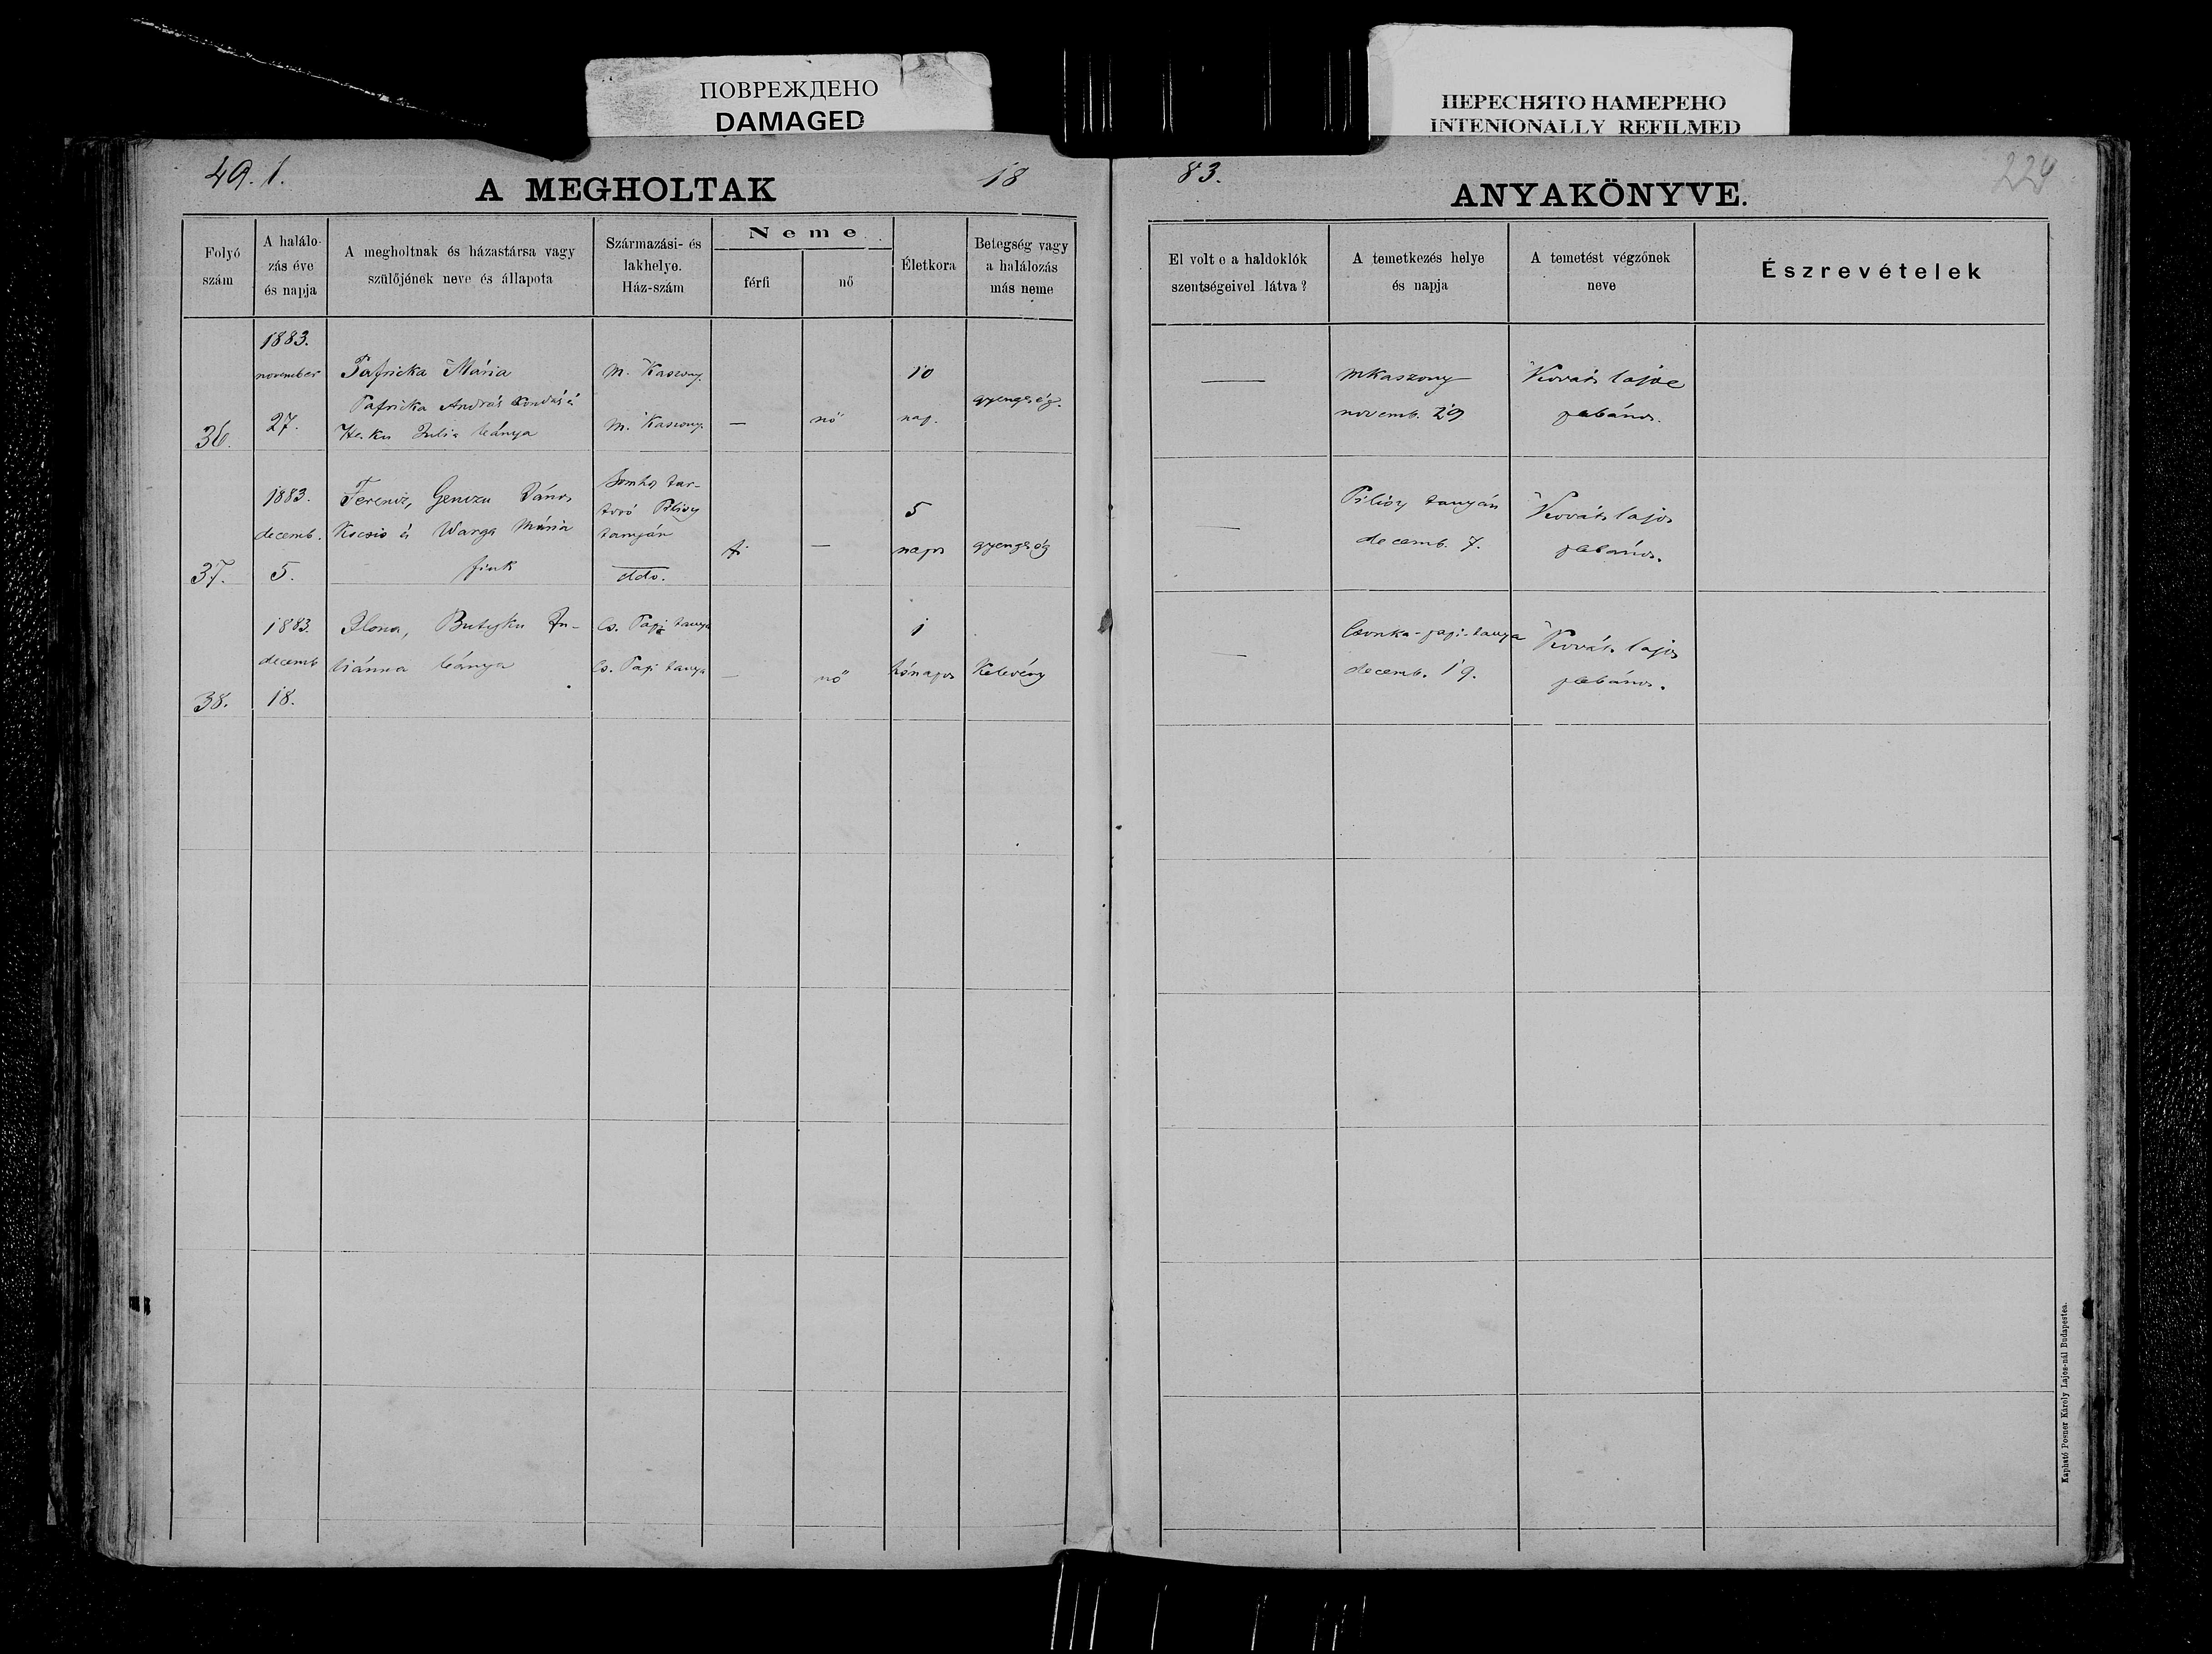 ПОВРЕЖДЕНО
DAMAGED
ПЕРЕСНЯТО НАМЕРЕНО
INTENIONALLY REFILMED
49. 1.
A MEGHOLTAK
18
83.
ANYAKÖNYVE.
224
Folyó
szám
A halálo-
zás éve
és napja
A megholtnak és házastársa vagy
szülőjének neve és állapota
Származási- és
lakhelye.
Ház-szám
Neme
férfi
nő
Életkora
Betegség vagy
a halálozás
más neme
El volt e a haldoklók
szentségeivel látva?
A temetkezés helye
és napja
A temetést végzőnek
neve
Észrevételek
36.
1883.
november
27.
Pafricka Mária
Pafricka András kondás és
Julia leánya
M. Kaszony.
M. Kaszony.
—
nő
10
nap.
gyengeség.
—
MKaszony
novemb. 29
Kováts lajos
plebános.
37.
1883.
decemb.
5.
Ferencz, János
Kocsis és Varga Mária
fiuk
tanyán
ddo.
f.
—
5
napos
gyengeség
—
tanyán
decemb. 7.
Kováts lajos
plebános.
38.
1883.
decemb
18.
Ilona, Ju-
liánna leánya
Cs. Papi tanya
Cs. Papi tanya
—
nő
1
hónapos
Kelevény
—
Csonka-papi-tanya
decemb. 19.
Kováts lajos
plebános.
Kapható Posner Károly Lajos-nál Budapesten.